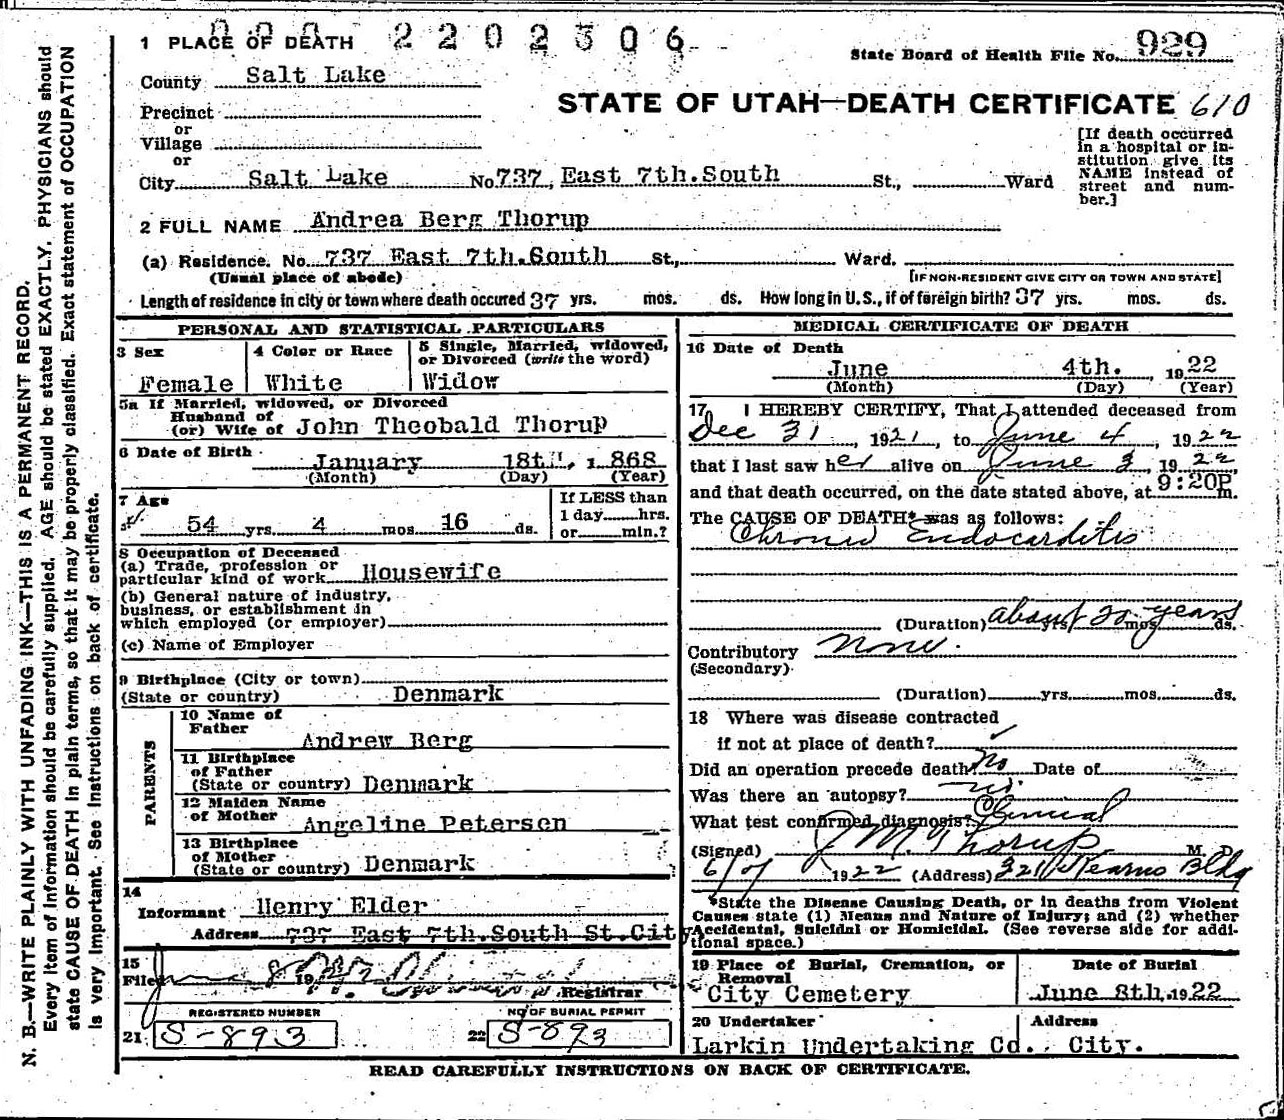 2202306
1 PLACE OF DEATH
State Board of Health File No. 929
County Salt Lake
STATE OF UTAH—DEATH CERTIFICATE 610
Precinct
or
Village
or
[If death occurred in a hospital or in-
stitution give its
NAME instead of
street and num-
ber.]
City Salt Lake No 737, East 7th. South St., Ward
2 FULL NAME Andrea Berg Thorup
(a) Residence. No. 737 East 7th. South St., Ward.
(Usual place of abode) [IF NON-RESIDENT GIVE CITY OR TOWN AND STATE]
Length of residence in city or town where death occured 37 yrs. mos. ds. How long in U. S., if of foreign birth? 37 yrs. mos. ds.
PERSONAL AND STATISTICAL PARTICULARS
3 Sex
Female
4 Color or Race
White
5 Single, Married, widowed,
or Divorced (write the word)
Widow
5a If Married, widowed, or Divorced
Husband of
(or) Wife of John Theobald Thorup
6 Date of Birth January 18th, 1868
(Month) (Day) (Year)
7 Age
54 yrs. 4 mos 16 ds.
If LESS than
1 day hrs.
or min.?
8 Occupation of Deceased
(a) Trade, profession or
particular kind of work Housewife
(b) General nature of industry,
business, or establishment in
which employed (or employer)
(c) Name of Employer
9 Birthplace (City or town)
(State or country) Denmark
PARENTS
10 Name of
Father Andrew Berg
11 Birthplace
of Father
(State or country) Denmark
12 Maiden Name
of Mother Angeline Petersen
13 Birthplace
of Mother
(State or country) Denmark
14
Informant Henry Elder
Address 737 East 7th. South St. City
15
Filed June 8 19
Registrar
REGISTERED NUMBER
21 S-893
NO OF BURIAL PERMIT
22 S-893
MEDICAL CERTIFICATE OF DEATH
16 Date of Death
June 4th. 1922
(Month) (Day) (Year)
17 I HEREBY CERTIFY, That I attended deceased from
Dec 31, 1921, to June 4, 1922
that I last saw her alive on June 3, 1922,
and that death occurred, on the date stated above, at 9:20P m.
The CAUSE OF DEATH* was as follows:
Chronic Endocarditis
(Duration) about 20 years yrs mos ds.
Contributory None.
(Secondary)
(Duration) yrs. mos. ds.
18 Where was disease contracted
if not at place of death?
Did an operation precede death? No Date of
Was there an autopsy? no
What test confirmed diagnosis? Clinical
(Signed) J M. Thorup M. D.
6/7 1922 (Address) 321 Kearns Bldg
*State the Disease Causing Death, or in deaths from Violent
Causes state (1) Means and Nature of Injury; and (2) whether
Accidental, Suicidal or Homicidal. (See reverse side for addi-
tional space.)
19 Place of Burial, Cremation, or
Removal
City Cemetery
Date of Burial
June 8th. 1922
20 Undertaker
Larkin Undertaking Co.
Address
City.
READ CAREFULLY INSTRUCTIONS ON BACK OF CERTIFICATE.
N. B.—WRITE PLAINLY WITH UNFADING INK—THIS IS A PERMANENT RECORD.
Every item of information should be carefully supplied. AGE should be stated EXACTLY. PHYSICIANS should
state CAUSE OF DEATH in plain terms, so that it may be properly classified. Exact statement of OCCUPATION
is very important. See instructions on back of certificate.